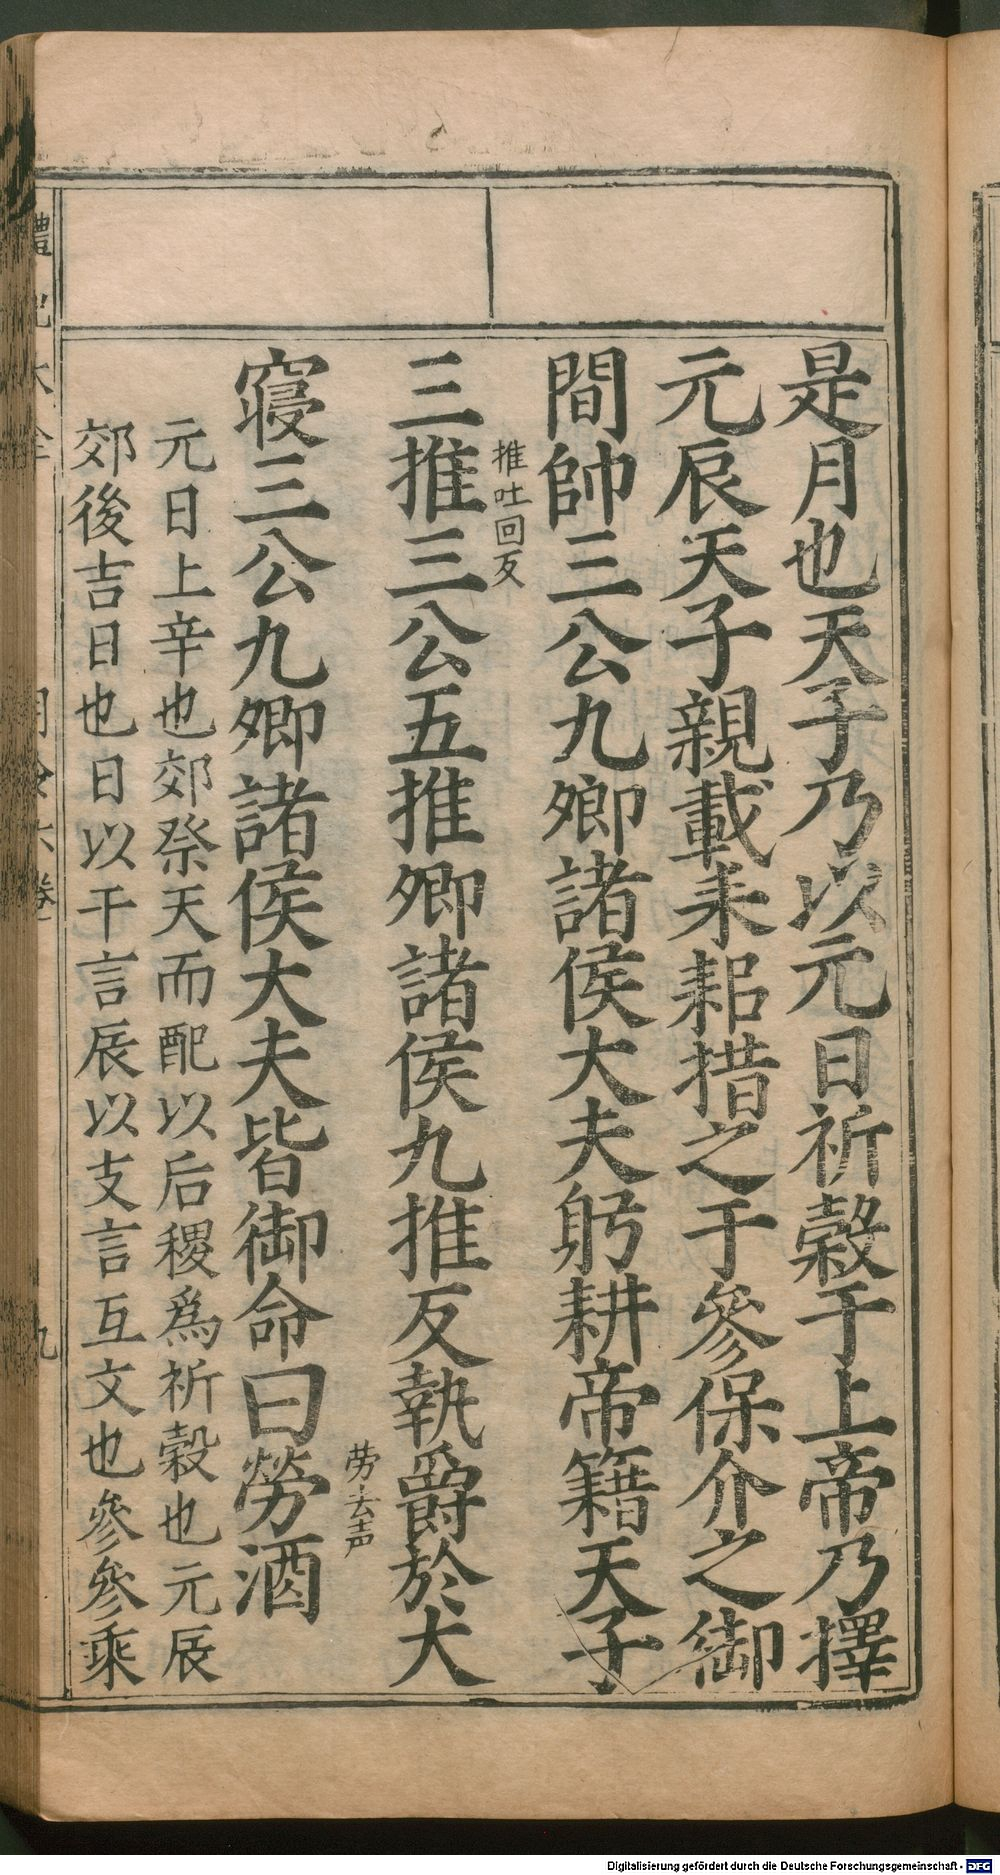 是月也天子乃以元日祈穀于上帝乃擇
元辰天子親載耒耜措之于參保介之御
間帥三公九卿諸侯大夫躬耕帝籍天子
推吐回反
三推三公五推卿諸侯九推反執爵於大
勞去声
寢三公九卿諸侯大夫皆御命曰勞酒
元日上辛也郊祭天而配以后稷爲祈穀也元辰
郊後吉日也日以干言辰以支言互文也參參乘
禮記大全 月令六卷 九
Digitalisierung gefördert durch die Deutsche Forschungsgemeinschaft - DFG